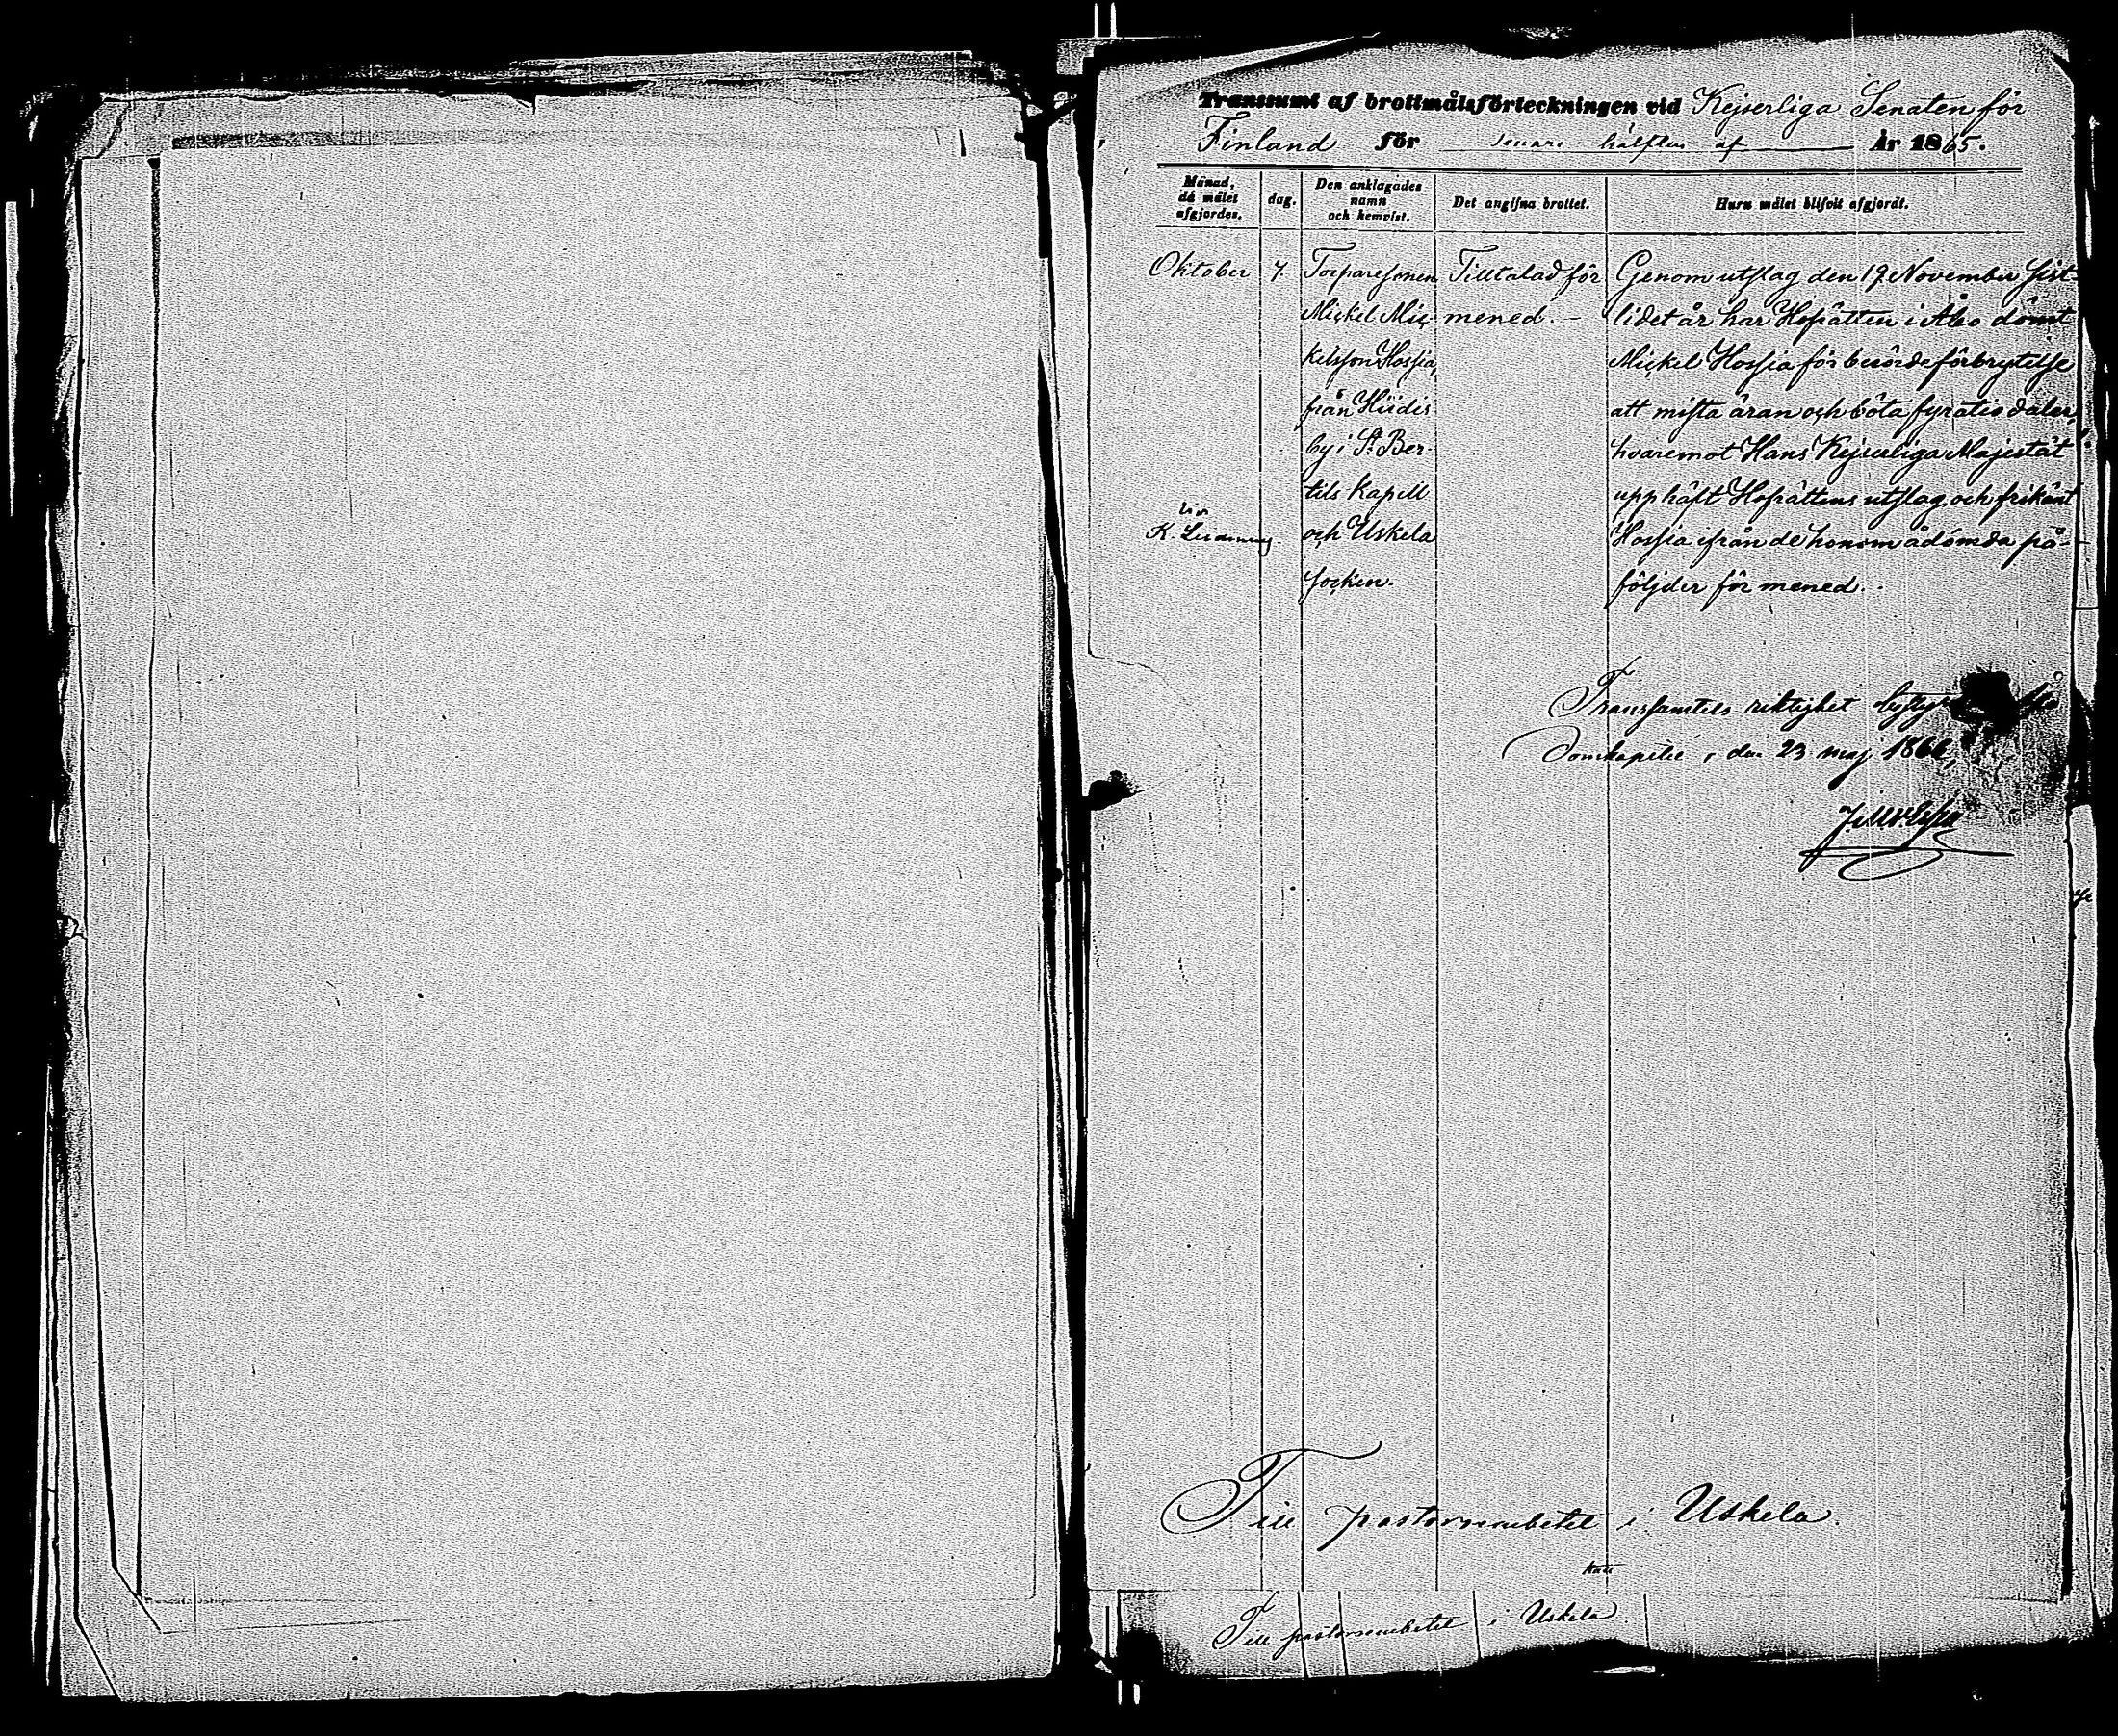 Transsumt af brottmålsförteckningen vid Kejserliga Senaten för
Finland för senare hälften af År 1865.
Månad, då målet afgjordes.
dag.
Den anklagades namn och hemvist.
Det angifna brottet.
Huru målet blifvit afgjordt.
Oktober
7.
Torparesonen
Mickel Mic-
kelsson Hossia,
från Hiidis
by i St Ber-
tils kapell
och Uskela
socken.
Tilltalad för
mened. –
Genom utslag den 19 November sist-
lidet år har Hofrätten i Åbo dömt
Mickel Hossia för berörde förbrytelse
att mista äran och böta fyratio daler,
hvaremot Hans Kejserliga Majestät
upphäft Hofrättens utslag och frikänt
Hossia ifrån de honom ådömda på-
följder för mened.
K.
Transsumtets riktighet
Domkapitel, den 23 maj 1866,
Till pastorsembetet i Uskela.
Till pastorsembetet i Uskela